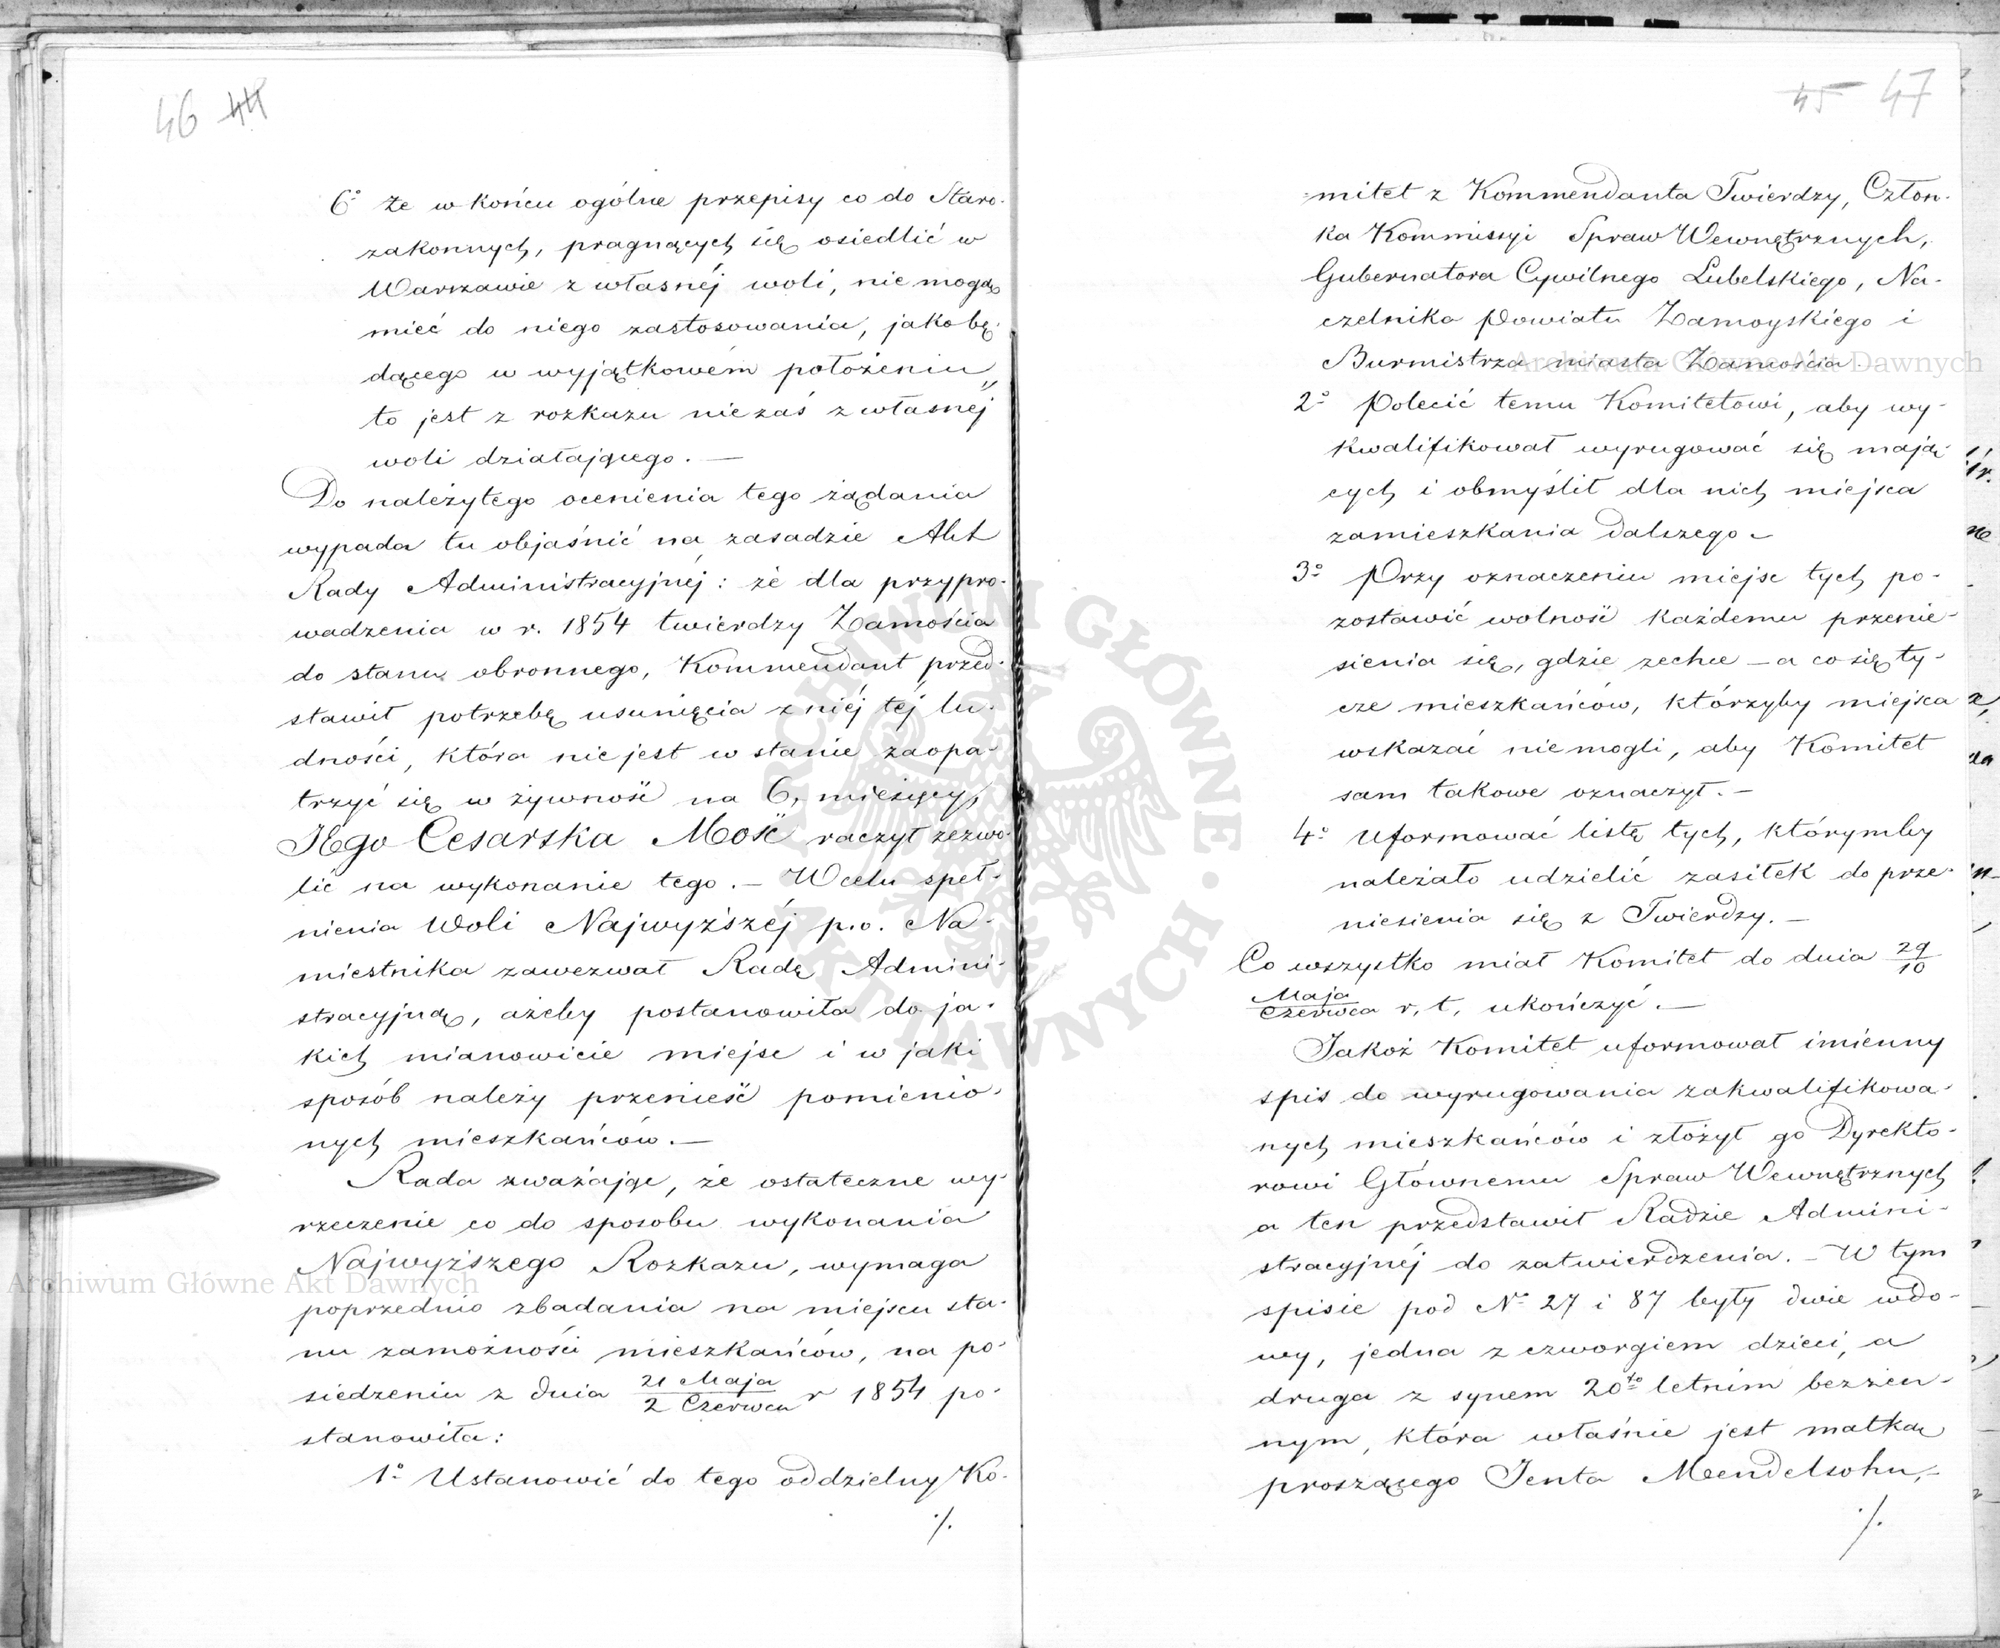 46 44
6° że w końcu ogólne przepisy co do Staro-
zakonnych, pragnących się osiedlić w
Warszawie z własnéj woli, nie mogą
mieć do niego zastosowania, jako bę-
dącego w wyjątkowém położeniu,
to jest z rozkazu nie zaś z własnéj
woli działającego. —
Do należytego ocenienia tego żądania
wypada tu objaśnić na zasadzie Akt
Rady Administracyjnéj: że dla przypro-
wadzenia w r. 1854 twierdzy Zamościa
do stanu obronnego, Kommendant przed-
stawił potrzebę usunięcia z niéj téj lu-
dności, która nie jest w stanie zaopa-
trzyć się w żywność na 6. miesięcy,
JEgo Cesarska Mość raczył zezwo-
lić na wykonanie tego. — W celu speł-
nienia Woli Najwyższéj p.o. Na-
miestnika zawezwał Radę Admini-
stracyjną, ażeby postanowiła do ja-
kich mianowicie miejsc i w jaki
sposób należy przenieść pomienio-
nych mieszkańców. —
Rada zważając, że ostateczne wy-
rzeczenie co do sposobu wykonania
Najwyższego Rozkazu, wymaga
poprzednio zbadania na miejscu sta-
nu zamożności mieszkańców, na po-
siedzeniu z dnia 21 Maja / 2 Czerwca r 1854 po-
stanowiła:
1° Ustanowić do tego oddzielny Ko-
./.
45 47
mitet z Kommendanta Twierdzy, Człon-
ka Kommissyi Spraw Wewnętrznych,
Gubernatora Cywilnego Lubelskiego, Na-
czelnika Powiatu Zamoyskiego i
Burmistrza miasta Zamościa.
2° Polecić temu Komitetowi, aby wy-
kwalifikował wyrugować się mają-
cych i obmyślił dla nich miejsca
zamieszkania dalszego —
3° Przy oznaczeniu miejsc tych po-
zostawić wolność każdemu przenie-
sienia się, gdzie zechce — a co się ty-
cze mieszkańców, którzyby miejsca
wskazać nie mogli, aby Komitet
sam takowe oznaczył. —
4° Uformować listę tych, którymby
należało udzielić zasiłek do prze-
niesienia się z Twierdzy. —
Co wszystko miał Komitet do dnia 29/10
Maja / Czerwca r. t. ukończyć. —
Jakoż Komitet uformował imienny
spis do wyrugowania zakwalifikowa-
nych mieszkańców i złożył go Dyrekto-
rowi Głównemu Spraw Wewnętrznych
a ten przedstawił Radzie Admini-
stracyjnéj do zatwierdzenia. — W tym
spisie pod № 27 i 87 były dwie wdo-
wy, jedna z czworgiem dzieci, a
druga z synem 20to letnim bezżen-
nym, która właśnie jest matką
proszącego Jenta Mendelsohn,—
./.
Archiwum Główne Akt Dawnych
Archiwum Główne Akt Dawnych
ARCHIWUM GŁÓWNE · AKT DAWNYCH ·